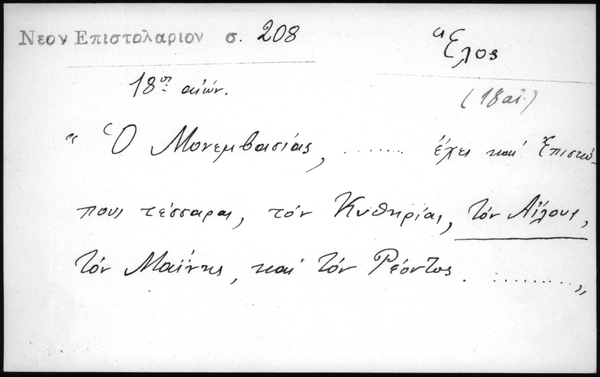 Νεον Επιστολαριον σ. 208
"Ελος
18ος αιών.
(18αι.)
"Ὁ Μονεμβασίας, ........ έχει και Επισκό-
πους τέσσαρας, τόν Κυθηρίας, τόν Αίλους,
τόν Μαΐνης, και τόν Ρέοντος. .........„